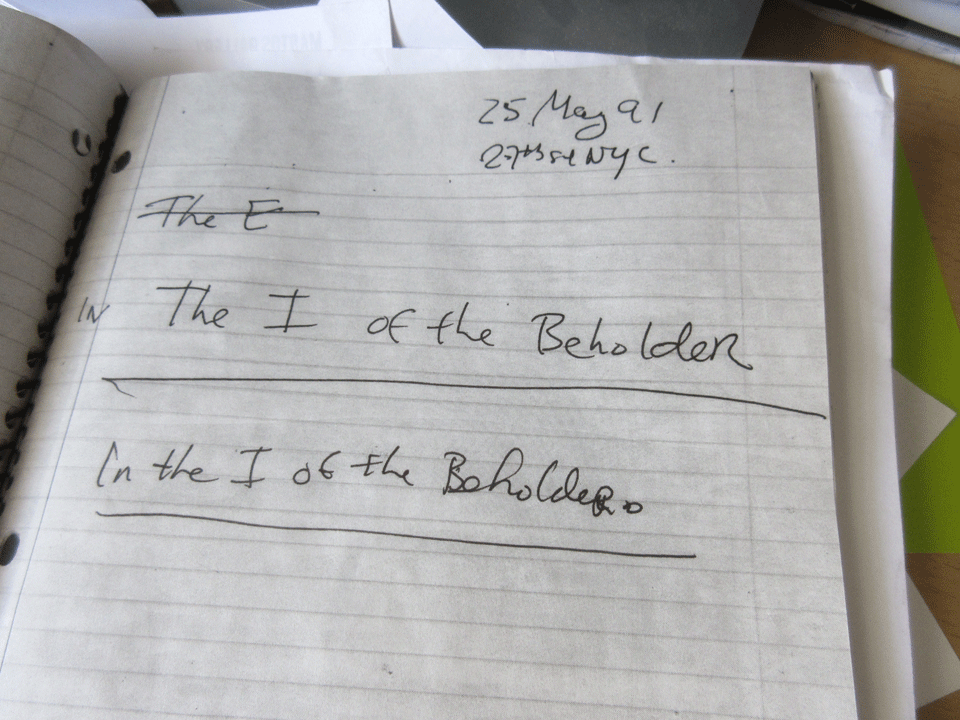 25 May 91
27th st NYC.
The E
IN The I of the Beholder
In the I of the Beholder.